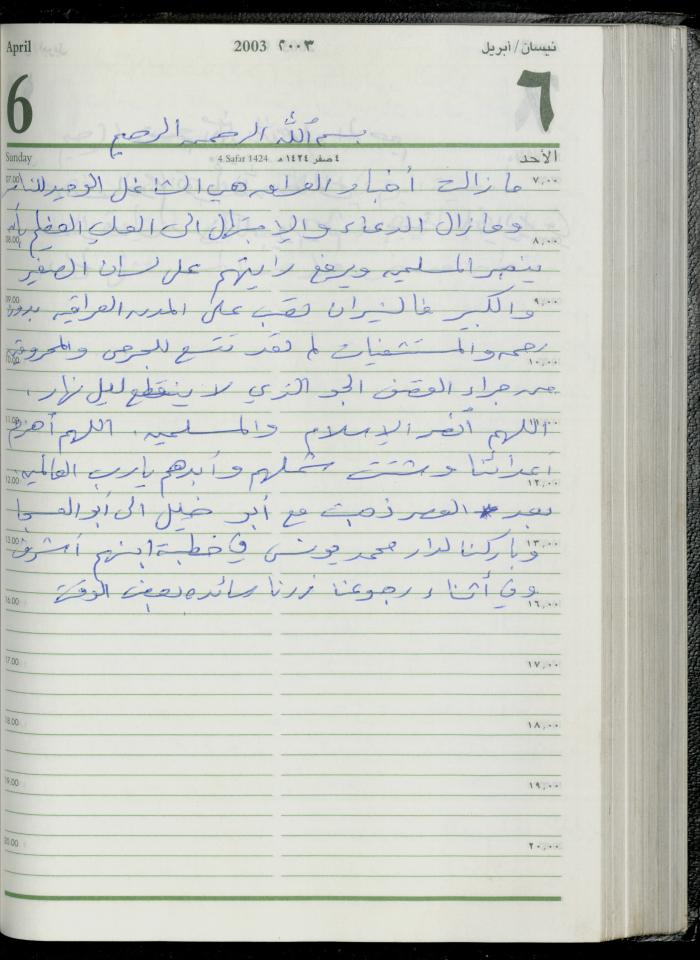 April 2003 ٢٠٠٣ نيسان / أبريل
6 ٦
بسم الله الرحمن الرحيم
Sunday 4 Safar 1424 ٤ صفر ١٤٢٤ هـ الأحد
07.00 ما زالت أخبار العراق هي الشاغل الوحيد للناس ٧,٠٠
وما زال الدعاء والابتهال الى العلي العظيم بأن
08.00 ٨,٠٠
ينصر المسلمين ويرفع رايتهم على لسان الصغير
09.00 والكبير فالنيران تصب على المدن العراقية بدون ٩,٠٠
رحمه والمستشفيات لم تعد تتسع للجرحى والمحروقين
10.00 ١٠,٠٠
من جراء القصف الجو الذي لا ينقطع ليل نهار .
11.00 اللهم أنصر الإسلام والمسلمين . اللهم أهزم ١١,٠٠
أعدائنا وشتت شملهم وأبدهم يا رب العالمين .
12.00 ١٢,٠٠
بعد العصر ذهبت مع أبو خليل الى أبو العسجا
13.00 وباركنا لدار محمد يونس في خطبة ابنهم أشرف ١٣,٠٠
وفي أثناء رجوعنا زرنا سائده بعض الوقت
16.00 ١٦,٠٠
17.00 ١٧,٠٠
18.00 ١٨,٠٠
19.00 ١٩,٠٠
20.00 ٢٠,٠٠